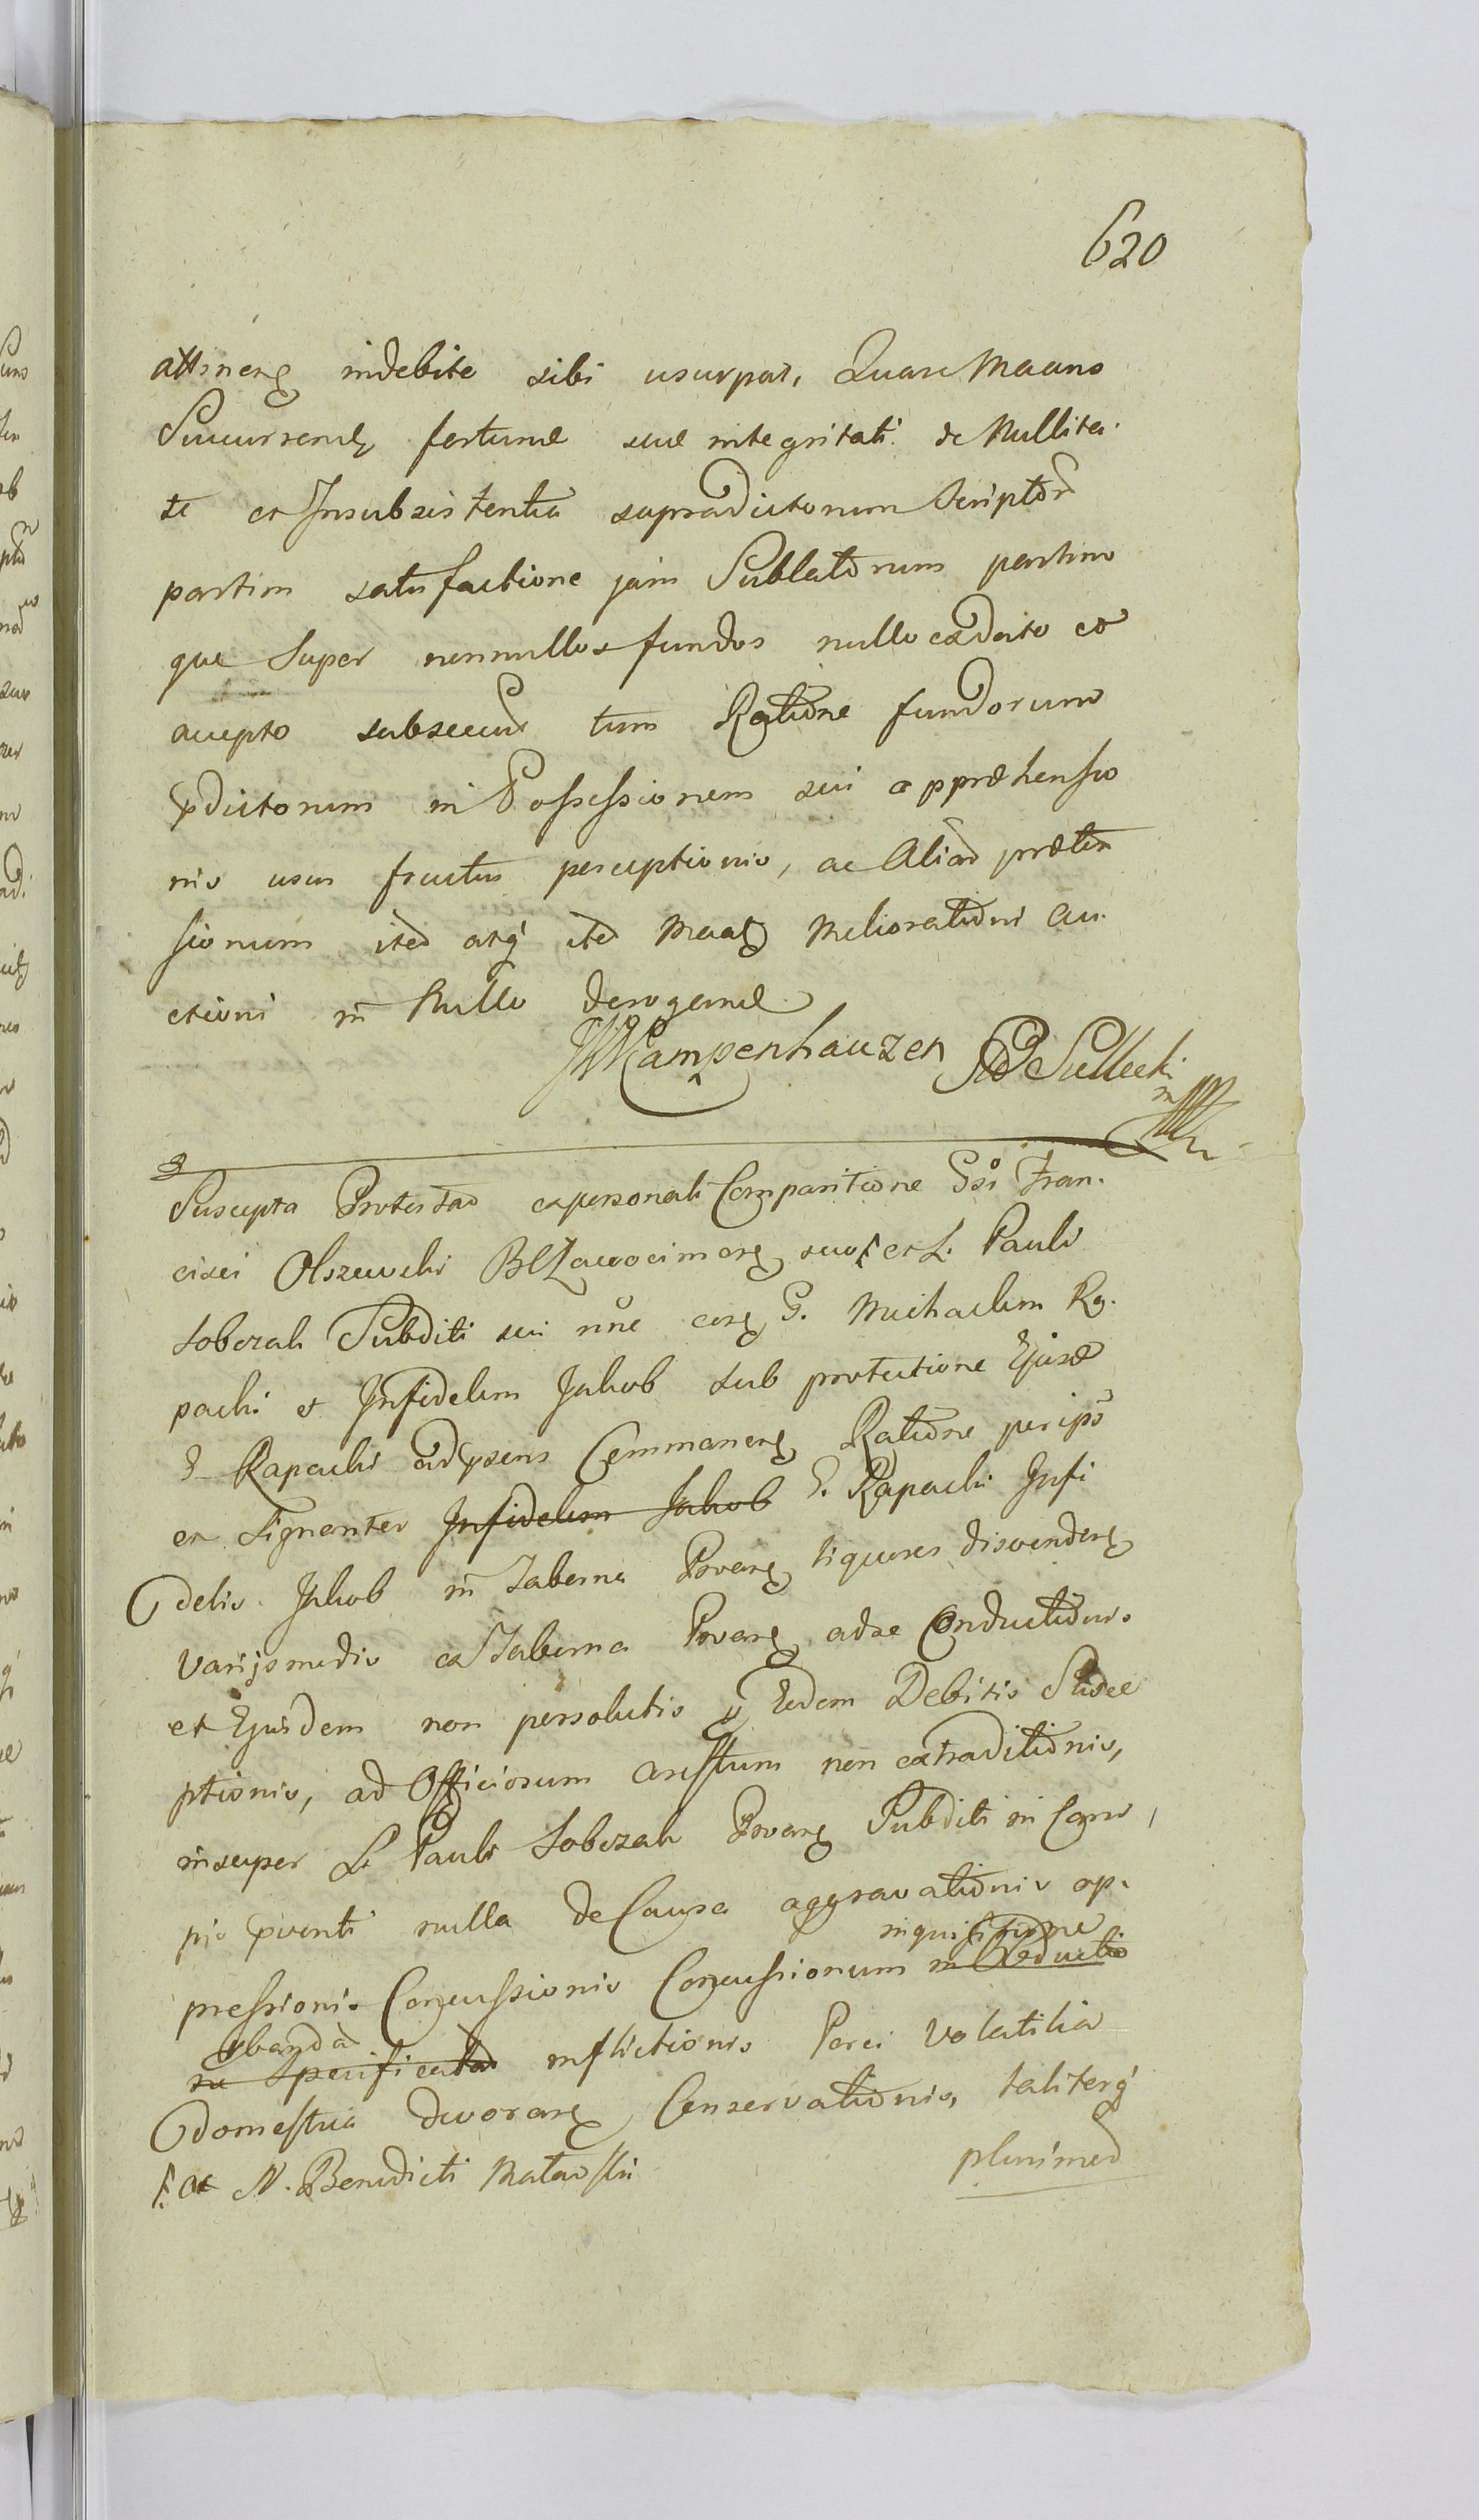 620
attinens indebite sibi usurpat, Quare Maans
Succurrendo fortunæ suæ integritati de Nullita-
te et Insubsistentia supradictorum Scriptor
partim satisfactione jam Sublatorum partim
que Super nonnullos fundos nullo exdato et
accepto subsecut tum Ratione fundorum
pdictorum in Possessionem sui appræhensio
nis usus fructus perceptionis, ac Aliar præten
sionum ited atq ited Maat Meliorationi au-
ctioni in Nullo derogand
JW Kampenhauzen Sullecki
Suscepta Protestao ex personali Comparitione Gsi Fran-
cisci Olszewski suo et L. Pauli
Sobczak Subditi sui nne cora G. Michaelem Ra-
packi et Infidelem Jakob sub protectione Ejusd
G Rapacki adpræsens Commanens Ratione per ipso
et Signanter Infidelem Jakob G. Rapacki Infi
delis Jakob in Taberna Provens liquores divendens
Varijs medio ex Taberna Provens ad se Conductionis
et Ejusdem non persolutis Eidem Debitis Susce
ptionis, ad Officiosum arestum non extraditionis,
insuper L. Pauli Sobczak Provens Subditi in Cam-
pis pventi nulla de Causa aggravationis op-
inquisitione
pressionis Concussionis Concussionum in Obductio
pbanda
ne Specificatar inflictionis Porci Volatilia
domestica devorans Conservationis, taliterq
et N. Benedicti Matowski
plurimed